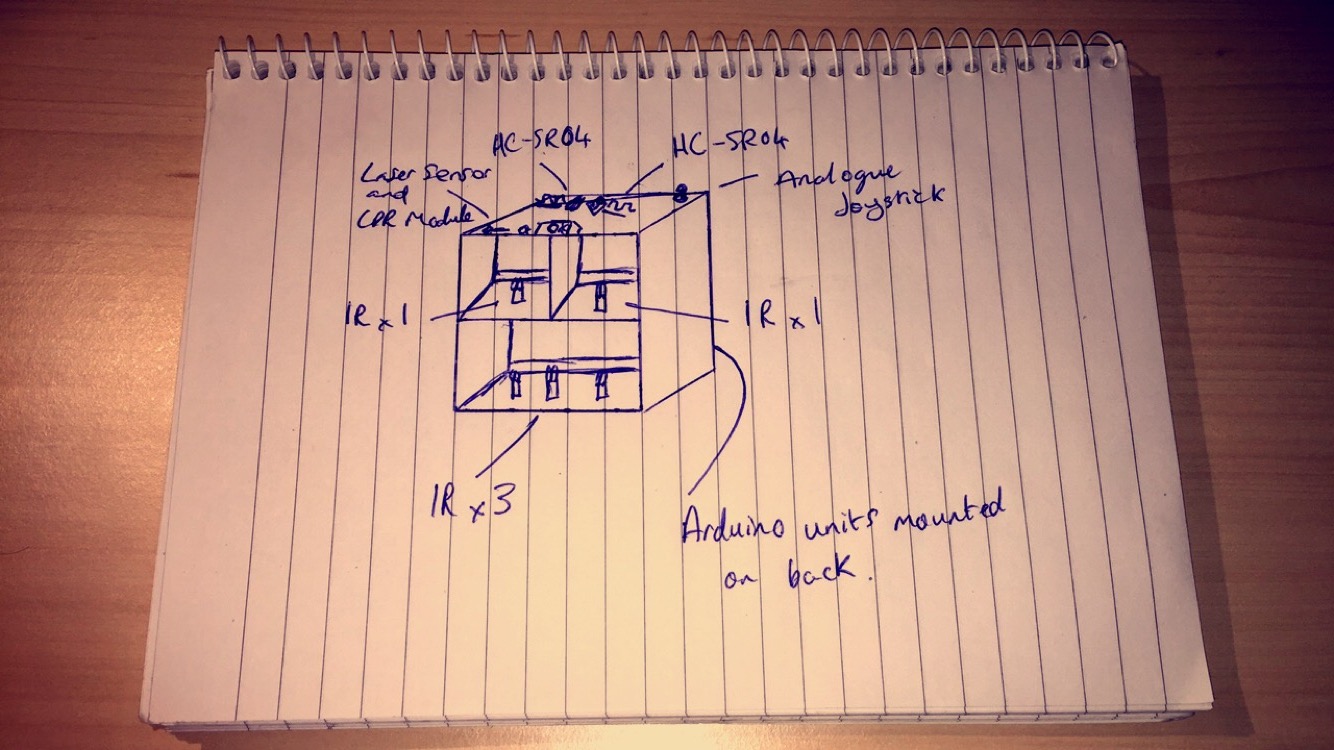 HC-SR04
HC-SR04
Laser Sensor
and
LDR Module
Analogue
Joystick
IR x 1
IR x 1
IR x 3
Arduino units mounted
on back.